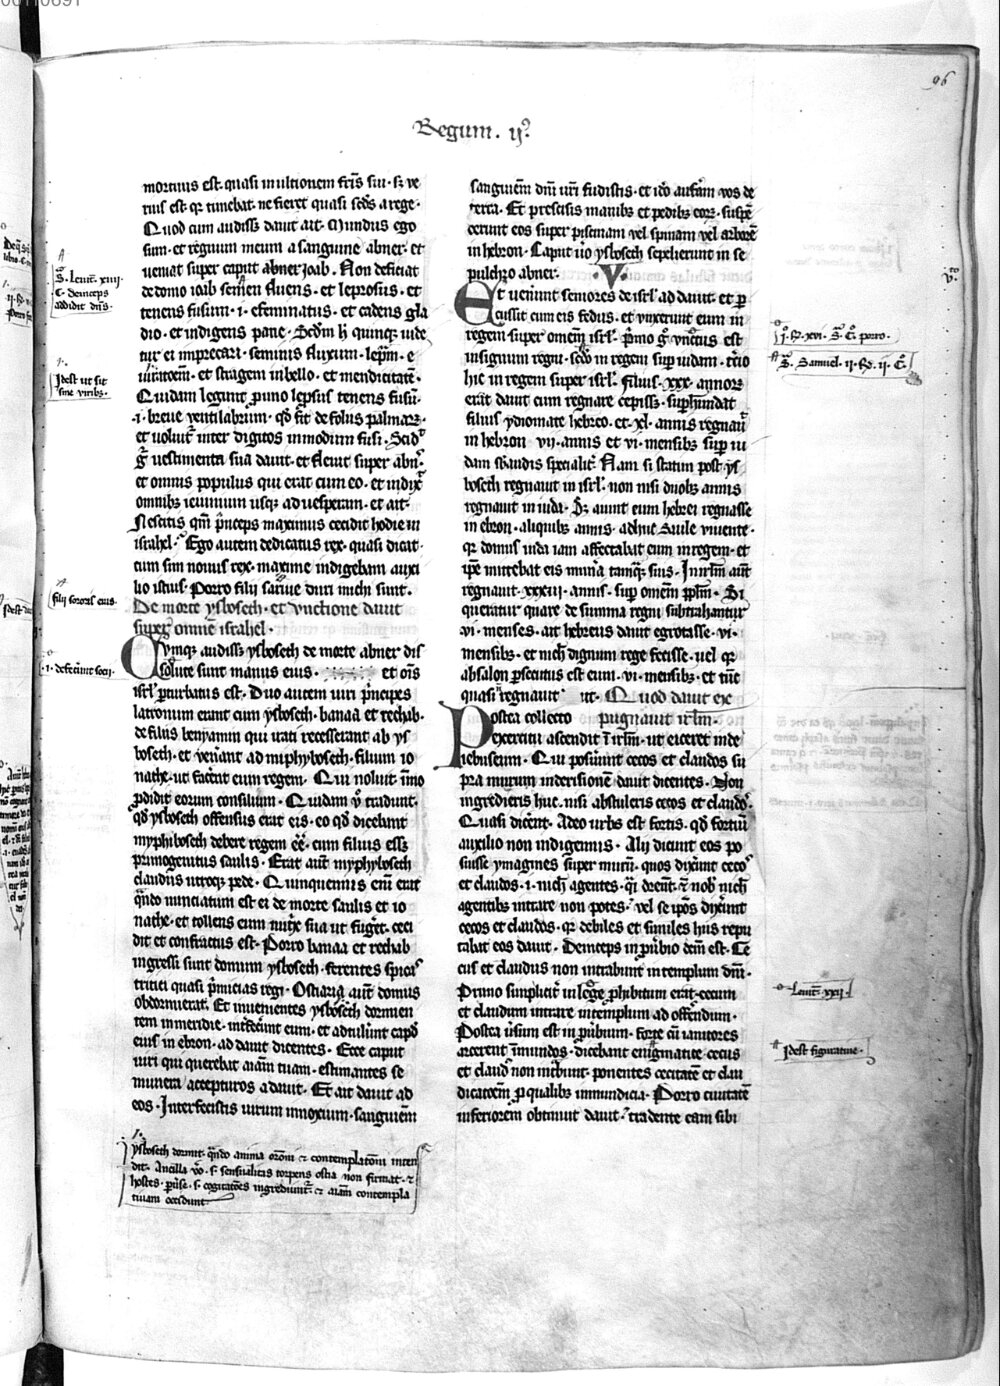 96
Regum. ij.
mortuus est. quasi in ultionem fris sui. sz ve
rius est. qr timebat. ne fieret quasi scds a rege.
Quod cum audissz dauit ait. Mundus ego
sum. et regnum meum a sanguine abner. et
ueniat super caput abner ioab. Non deficiat
de domo ioab semen fluens. et leprosus. et
tenens fusum. i. efeminatus. et cadens gla
dio. et indigens pane. Scdm h quinqz uide
tur ei imprecari. seminis fluxum. lepram. e
et stragem in bello. et mendicitate.
Quidam legunt pro uno lepsus tenens fusu.
i. breue ventilabrum. qd fit de foliis palmarz.
et uoluit inter digitos in modum fusi. Scid
g uestimenta sua dauit. et fleuit super abn.
et omnis populus qui erat cum eo. et indix
omnibz ieiunium usqz ad uesperam. et ait.
Nescitis qm princeps maximus cecidit hodie in
israhel. Ego autem dedicatus rex. quasi dicat.
cum sim nouus rex. maxime indigebam auxi
lio istius. Porro filii saruie duri michi sunt.
De morte ysboseth. et vnctione dauit
super omnem israhel.
Cumqz audissz ysboseth de morte abner dis
solute sunt manus eius. et ois
isrl perturbatus est. Duo autem uiri principes
latronum erant cum ysboseth. banaa et rechab.
de filiis beniamin qui irati recesserant ab ys
boseth. et veniant ad miphyboseth. filium io
nathe. ut facent eum regem. Qui noluit. immo
prodidit eorum consilium. Quidam v tradunt.
qd ysboseth offensus erat eis. eo qd dicebant
myphiboseth debere regem ee. cum filius essz
primogenitus saulis. Erat aut myphyboseth
claudus utroqz pede. Quinquennis eni erat
qndo nunciatum est ei de morte saulis et io
nathe. et tollens eum nutrix sua ut fuget. ceci
dit et confractus est. Porro banaa et rechab
ingressi sunt domum ysboseth. ferentes spicas
tritici quasi primicias regi. Ostiaria aut domus
obdormierat. Et inuenientes ysboseth dormien
tem in meridie. interfecint eum. et adtulint capd
eius in ebron. ad dauit dicentes. Ecce caput
uiri qui querebat aiam tuam. estimantes se
munera accepturos a dauit. Et ait dauit ad
eos. Interfecistis uirum innoxium. sanguiem
sanguiem dni uri fudistis. et ido auferam vos de
terra. Et prescisis manibz et pedibz eorz. suspe
cerunt eos super piscinam vel spinam vel arbore
in hebron. Caput uo ysboseth sepelierunt in se
pulchro abner. V.
Et venunt seniores de isrl ad dauit. et p
cussit cum eis fedus. et vnxerunt eum in
regem super omem isrl. Primo g vnctus est
in signum regni. scdo in regem sup iudam. tcio
hic in regem super isrl. Filius. xxx. annorz
erat dauit cum regnare cepissz. suphundat
filius ydiomate hebreo. et. xl. annis regnauit
in hebron vij. annis et vi. mensibz sup iu
dam sbaudis specialit. Nam si statim post ys
boseth regnauit in isrl. non nisi duobz annis
regnauit in iuda. Sz aiunt eum hebrei regnasse
in ebron. aliquibz annis. adhuc saule viuente.
qr domus iuda iam affectabat eum in regem. et
ipe mittebat eis munera tamqz suis. In irlm aut
regnauit. xxxiij. annis. sup omem pplm. Si
queratur quare de summa regni subtrahantur
vi. menses. ait hebreus dauit egrotasse. vi.
mensibz. et nich dignum rege fecisse. uel qr
absalon persecutus est eum. vi. mensibz. et tuc
quasi regnauit ut. Quod dauit ex
Postea collecto pugnauit irlm.
exercitu ascendit i irlm. ut eiceret inde
iebuseum. Qui posuint cecos et claudos su
pra murum in derisione dauit dicentes. Non
ingredieris huc. nisi abstuleris cecos et claudos.
Quasi dicent. Adeo urbs est fortis. qd fortiu
auxilio non indigemus. Alij dicunt eos po
suisse ymagines super muru. quos dixint cecos
et claudos. i. nich agentes. qi dicent. z nob nich
agentibz intrare non potes. vel se ipos dixint
cecos et claudos. qr debiles et similes hiis repu
tabat eos dauit. Deinceps in prouerbio dcm est. Ce
cus et claudus non intrabunt in templum dni.
Primo simplicit in lege phibitum erat. cecum
et claudum intrare in templum ad offerendum.
Postea usum est in puerbium. forte cu ianitores
arcerent immundos. dicebant enigmatice cecus
et claudus non intrabunt. ponentes cecitatem et clau
dicatoem p qualibz immundicia. Porro ciuitate
inferiorem obtinuit dauit. tradente eam sibi
S. Leuit. xiiij
C. deinceps
addidit dns.
Idest ut sit
sine viribz.
filij sororis eius.
i. defecerunt socij.
I. R. xvi. S. C. porro.
S. Samuel. ij. R. ij. C.
V.
Leuit. xxi.
Idest figuratiue.
ysboseth dormit. qndo anima oroni z contemplatoni inten
dit. Ancilla vo. s. sensualitas torpens ostia non firmat. z
hostes. s. cogitatoes ingrediunt. z aiam contempla
tiuam occidunt.